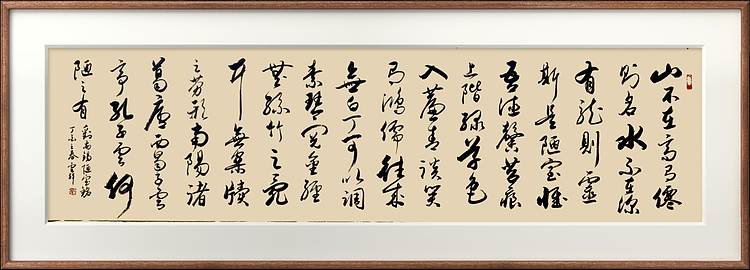 山不在高有僊
則名水不在深
有龍則靈
斯是陋室惟
吾德馨苔痕
上階緑草色
入簾青談笑
有鴻儒往來
無白丁可以調
素琴閲金經
無絲竹之亂
耳無案牘
之勞形南陽諸
葛廬西蜀子雲
亭孔子雲何
陋之有
劉禹錫陋室銘